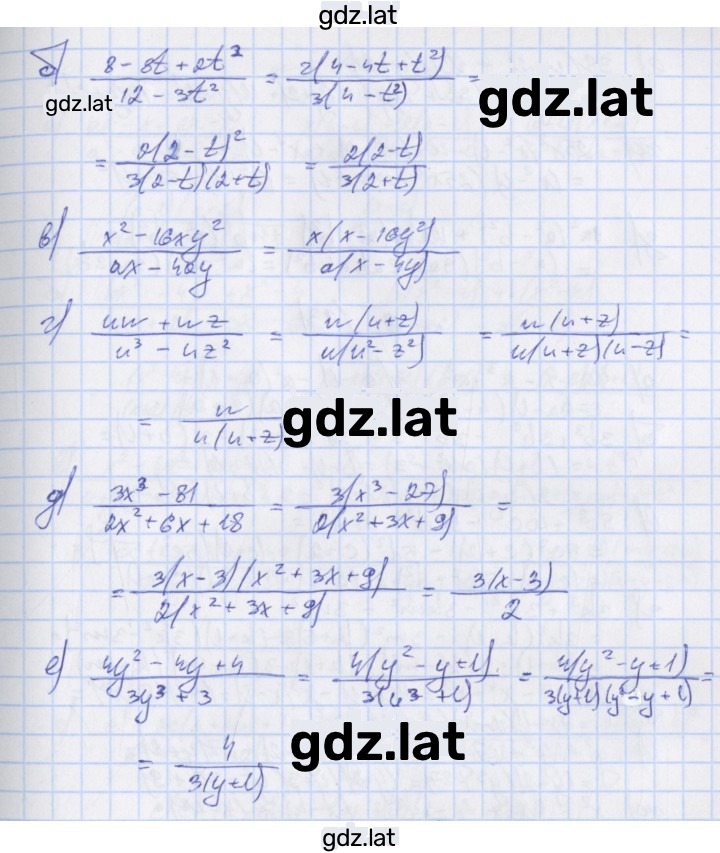 gdz.lat
б) (8 - 8t + 2t²)/(12 - 3t²) = 2(4 - 4t + t²)/3(4 - t²) =
gdz.lat
gdz.lat
= 2(2 - t)²/3(2 - t)(2 + t) = 2(2 - t)/3(2 + t)
в) (x² - 16xy²)/(ax - 4ay) = x(x - 16y²)/a(x - 4y)
г) = n(n + z)/n(n² - z²) = n(n + z)/n(n + z)(n - z) =
= n/n(n + z)
gdz.lat
д) (3x³ - 81)/(2x² + 6x + 18) = 3(x³ - 27)/2(x² + 3x + 9) =
= 3(x - 3)(x² + 3x + 9)/2(x² + 3x + 9) = 3(x - 3)/2
е) (4y² - 4y + 4)/(3y³ + 3) = 4(y² - y + 1)/3(y³ + 1) = 4(y² - y + 1)/3(y + 1)(y² - y + 1) =
= 4/3(y + 1)
gdz.lat
gdz.lat